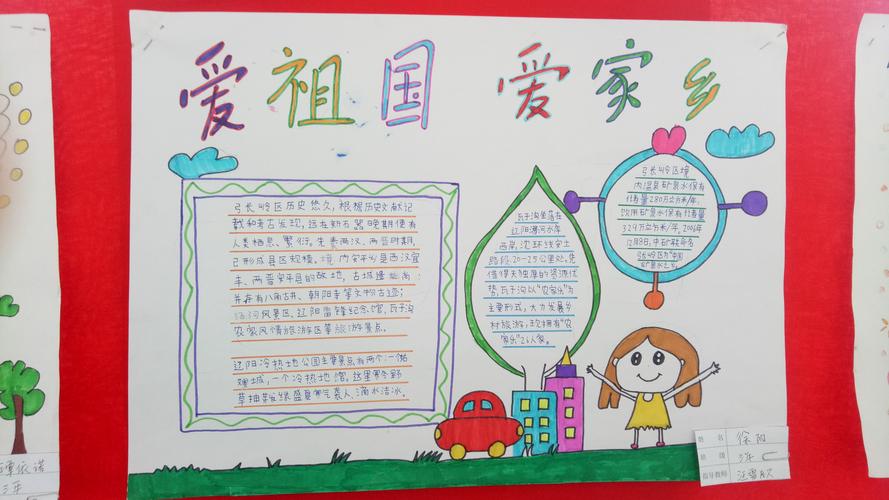 爱祖国 爱家乡
弓长岭区历史悠久,根据历史文献记
载和考古发现,远在新石器晚期便有
人类栖息、繁衍。生
两汉、两晋时期,
已形成县区规模。境内安平乡是西汉宜
丰、两晋安平县的故地,古城遗址尚
并存有八角古井、朝阳寺等文物古迹;
汤河风景区、辽阳雷锋纪念馆、瓦子沟
农家风情旅游区等旅游景点。
辽阳冷热地公园主要景点有两个:一
城,一个冷热地馆,这里寒冬野
草抽芽
绿盛夏寒气袭人、滴水洁冰。
瓦子沟坐落在
辽阳
河东岸
西岸,沈环线安土
路段20-25公里处。凭
借得天独厚的资源优
势,瓦子沟以“农家乐”为
主要形式,大力发展乡
村旅游,现拥有“农
家乐”26人家。
弓长岭区境
内温泉矿泉水保有
储量280万立方米/年,
饮用矿泉水保有储量
32.9万立方米/年,2006年
12月8日,中矿联命名
弓长岭区为“中国
矿泉水之乡
姓名 徐阳
班级 三年
指导教师
谭依诺
三年